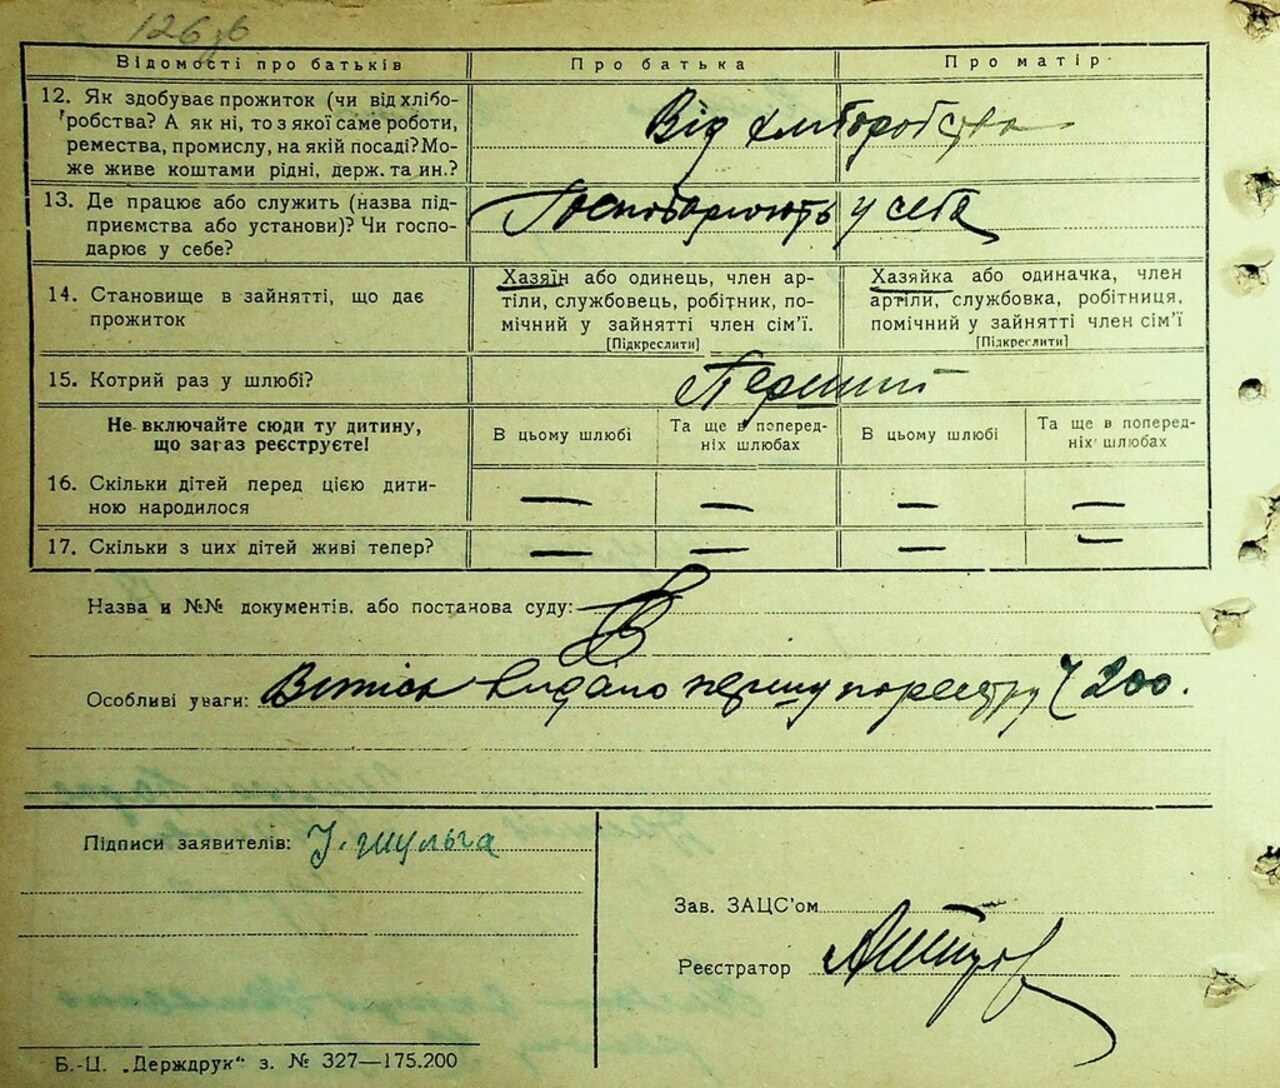 126 зв
Відомості про батьків Про батька Про матір
12. Як здобуває прожиток (чи від хлібо-
робства? А як ні, то з якої саме роботи,
ремества, промислу, на якій посаді? Мо-
же живе коштами рідні, держ. та ин.?
Від хліборобства
13. Де працює або служить (назва під-
приємства або установи)? Чи госпо-
дарює у себе?
Господарюють у себе
14. Становище в зайнятті, що дає
прожиток
Хазяїн або одинець, член ар-
тіли, службовець, робітник, по-
мічний у зайнятті член сім'ї.
[Підкреслити]
Хазяйка або одиначка, член
артіли, службовка, робітниця,
помічний у зайнятті член сім'ї
[Підкреслити]
15. Котрий раз у шлюбі?
Перший
Не включайте сюди ту дитину,
що загаз реєструєте!
В цьому шлюбі
Та ще в поперед-
ніх шлюбах
В цьому шлюбі
Та ще в поперед-
ніх шлюбах
16. Скільки дітей перед цією дити-
ною народилося
— — — —
17. Скільки з цих дітей живі тепер?
— — — —
Назва и №№ документів, або постанова суду:
Особливі уваги: Витіс видано першу по реестру 200.
Підписи заявителів: У. Шульга
Зав. ЗАЦС'ом
Реєстратор
Б.-Ц. „Держдрук" з. № 327—175.200